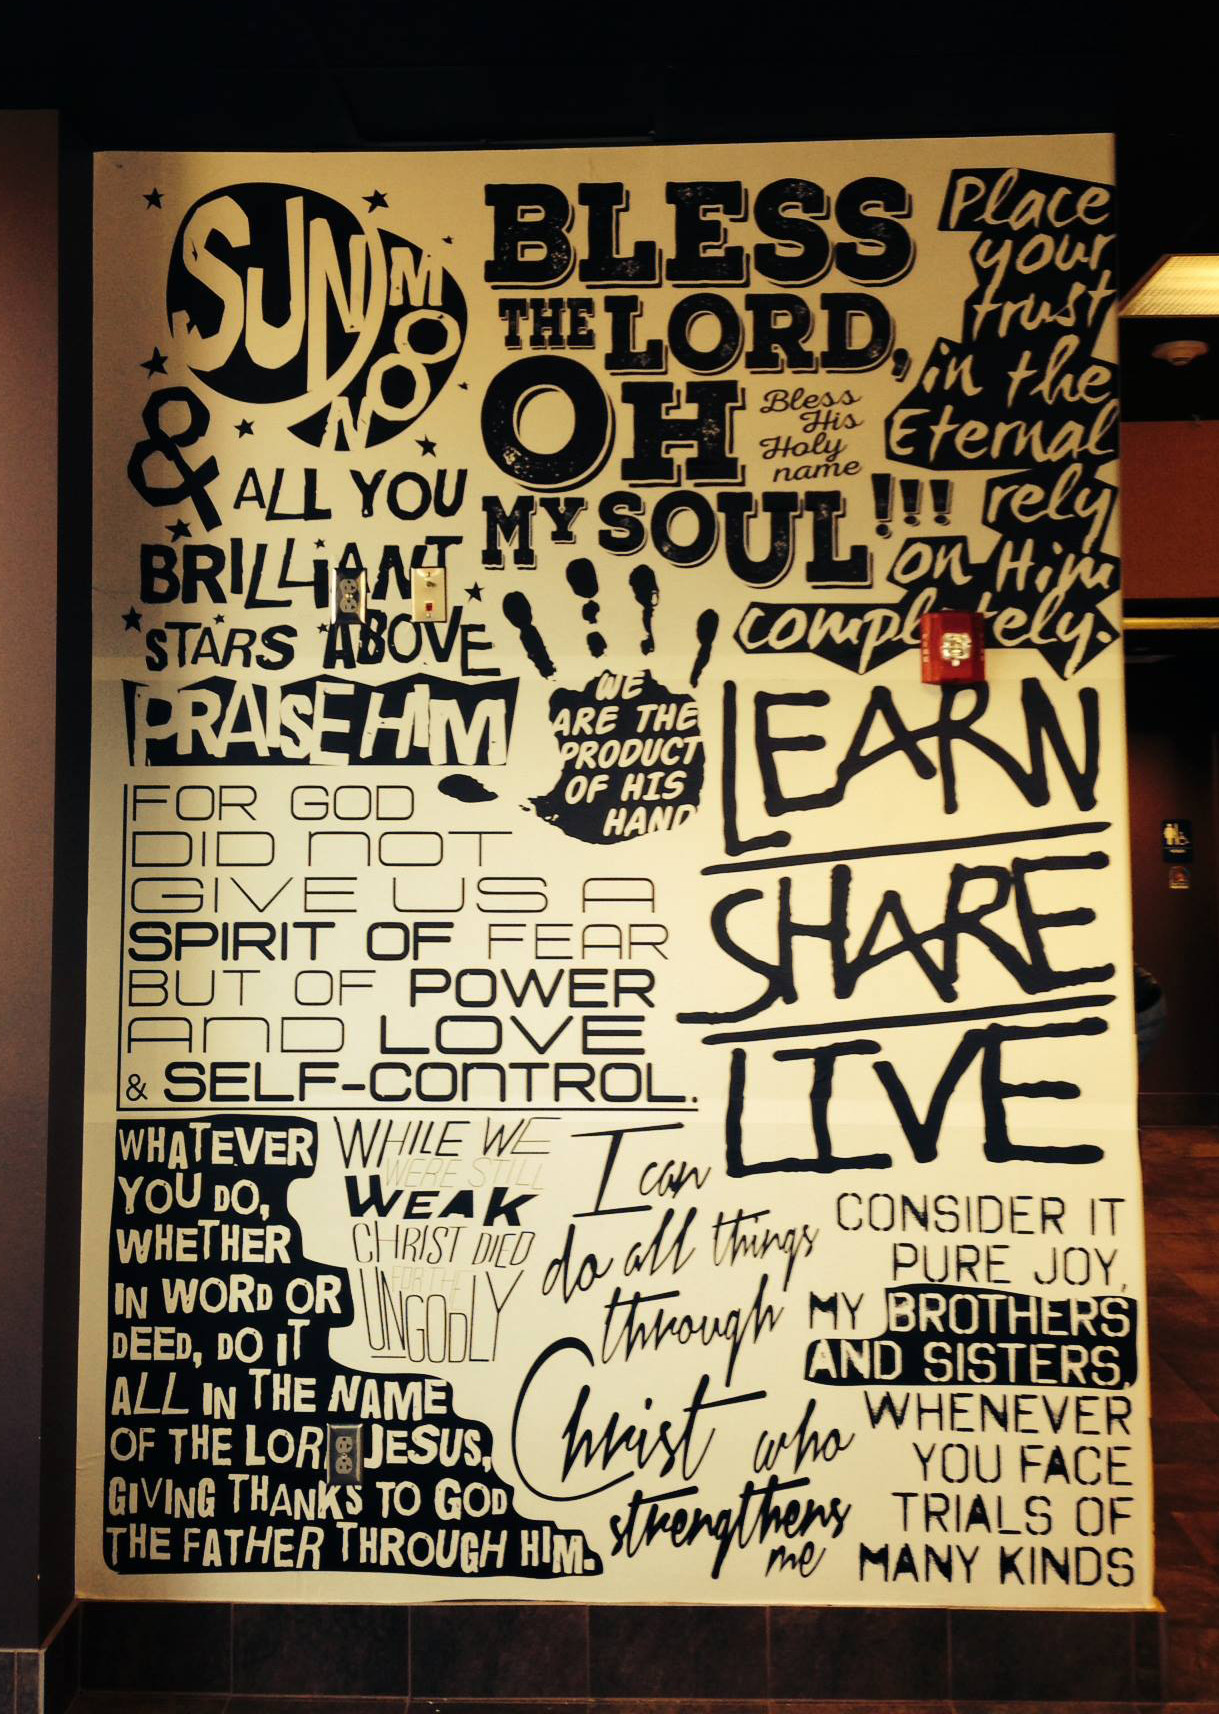 SUN
MOON
& ALL YOU
BRILLIANT
STARS ABOVE
PRAISE HIM
BLESS
THE LORD,
OH
Bless
His
Holy
name
MY SOUL!!!
Place
your
trust
in the
Eternal
rely
on Him
completely.
WE
ARE THE
PRODUCT
OF HIS
HAND
LEARN
SHARE
LIVE
FOR GOD
DID NOT
GIVE US A
SPIRIT OF FEAR
BUT OF POWER
AND LOVE
& SELF-CONTROL.
WHATEVER
YOU DO,
WHETHER
IN WORD OR
DEED, DO IT
ALL IN THE NAME
OF THE LORD JESUS,
GIVING THANKS TO GOD
THE FATHER THROUGH HIM.
WHILE WE
WERE STILL
WEAK
CHRIST DIED
FOR THE
UNGODLY
I can
do all things
through
Christ who
strengthens
me
CONSIDER IT
PURE JOY,
MY BROTHERS
AND SISTERS,
WHENEVER
YOU FACE
TRIALS OF
MANY KINDS